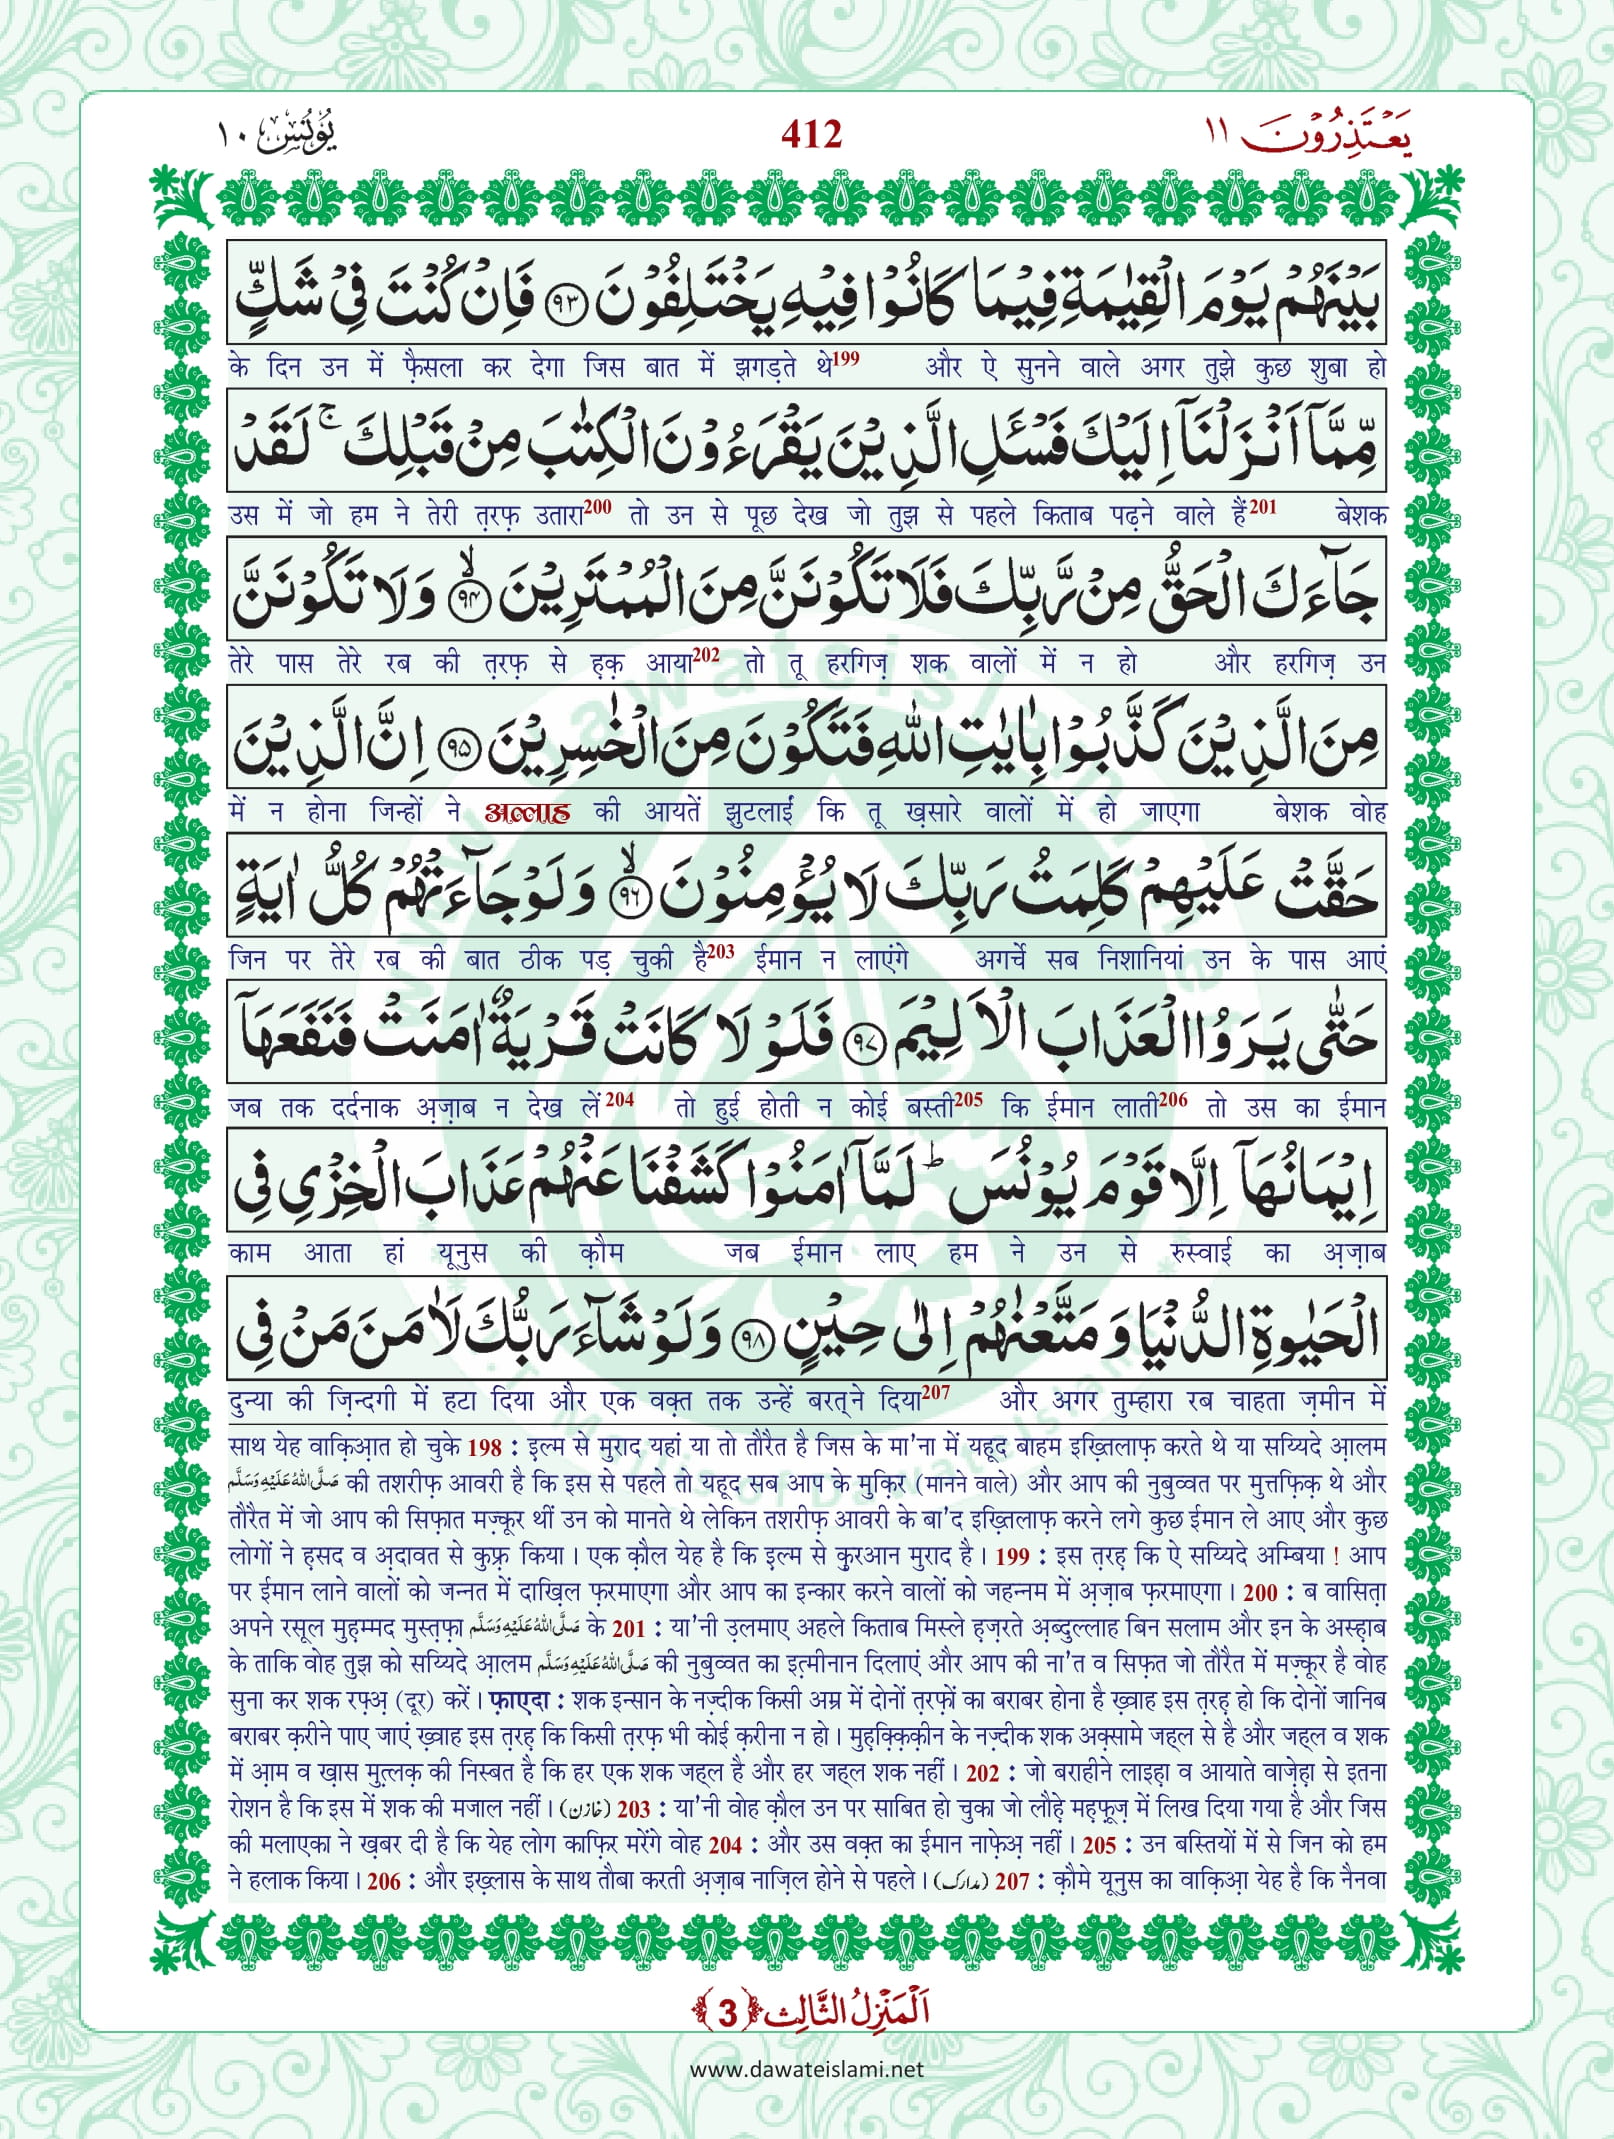 يَعْتَذِرُوْنَ ١١
412
يُوْنُس ١٠
بَيْنَهُمْ يَوْمَ الْقِيٰمَةِ فِيْمَا كَانُوْا فِيْهِ يَخْتَلِفُوْنَ ﴿۹۳﴾ فَاِنْ كُنْتَ فِيْ شَكٍّ
के दिन उन में फ़ैसला कर देगा जिस बात में झगड़ते थे199 और ऐ सुनने वाले अगर तुझे कुछ शुबा हो
مِّمَّاۤ اَنْزَلْنَاۤ اِلَيْكَ فَسْـَٔلِ الَّذِيْنَ يَقْرَءُوْنَ الْكِتٰبَ مِنْ قَبْلِكَ ۚ لَقَدْ
उस में जो हम ने तेरी त़रफ़ उतारा200 तो उन से पूछ देख जो तुझ से पहले किताब पढ़ने वाले हैं201 बेशक
جَآءَكَ الْحَقُّ مِنْ رَّبِّكَ فَلَا تَكُوْنَنَّ مِنَ الْمُمْتَرِيْنَ ﴿ۙ۹۴﴾ وَلَا تَكُوْنَنَّ
तेरे पास तेरे रब की त़रफ़ से ह़क़ आया202 तो तू हरगिज़ शक वालों में न हो और हरगिज़ उन
مِنَ الَّذِيْنَ كَذَّبُوْا بِاٰيٰتِ اللّٰهِ فَتَكُوْنَ مِنَ الْخٰسِرِيْنَ ﴿۹۵﴾ اِنَّ الَّذِيْنَ
में न होना जिन्हों ने अल्लाह की आयतें झुटलाईं कि तू ख़सारे वालों में हो जाएगा बेशक वोह
حَقَّتْ عَلَيْهِمْ كَلِمَتُ رَبِّكَ لَا يُؤْمِنُوْنَ ﴿ۙ۹۶﴾ وَلَوْ جَآءَتْهُمْ كُلُّ اٰيَةٍ
जिन पर तेरे रब की बात ठीक पड़ चुकी है203 ईमान न लाएंगे अगर्चे सब निशानियां उन के पास आएं
حَتّٰى يَرَوُا الْعَذَابَ الْاَلِيْمَ ﴿۹۷﴾ فَلَوْ لَا كَانَتْ قَرْيَةٌ اٰمَنَتْ فَنَفَعَهَاۤ
जब तक दर्दनाक अ़ज़ाब न देख लें204 तो हुई होती न कोई बस्ती205 कि ईमान लाती206 तो उस का ईमान
اِيْمَانُهَاۤ اِلَّا قَوْمَ يُوْنُسَ ؕ لَمَّاۤ اٰمَنُوْا كَشَفْنَا عَنْهُمْ عَذَابَ الْخِزْيِ فِي
काम आता हां यूनुस की क़ौम जब ईमान लाए हम ने उन से रुस्वाई का अ़ज़ाब
الْحَيٰوةِ الدُّنْيَا وَ مَتَّعْنٰهُمْ اِلٰى حِيْنٍ ﴿۹۸﴾ وَلَوْ شَآءَ رَبُّكَ لَاٰمَنَ مَنْ فِي
दुन्या की ज़िन्दगी में हटा दिया और एक वक़्त तक उन्हें बरत्ने दिया207 और अगर तुम्हारा रब चाहता ज़मीन में
साथ येह वाक़िआ़त हो चुके 198 : इ़ल्म से मुराद यहां या तो तौरैत है जिस के मा'ना में यहूद बाहम इख़्तिलाफ़ करते थे या सय्यिदे आ़लम
صَلَّى اللهُ عَلَيْهِ وَسَلَّم की तशरीफ़ आवरी है कि इस से पहले तो यहूद सब आप के मुक़िर (मानने वाले) और आप की नुबुव्वत पर मुत्तफ़िक़ थे और
तौरैत में जो आप की सिफ़ात मज़्कूर थीं उन को मानते थे लेकिन तशरीफ़ आवरी के बा'द इख़्तिलाफ़ करने लगे कुछ ईमान ले आए और कुछ
लोगों ने ह़सद व अ़दावत से कुफ़्र किया। एक क़ौल येह है कि इ़ल्म से क़ुरआन मुराद है। 199 : इस त़रह़ कि ऐ सय्यिदे अम्बिया ! आप
पर ईमान लाने वालों को जन्नत में दाख़िल फ़रमाएगा और आप का इन्कार करने वालों को जहन्नम में अ़ज़ाब फ़रमाएगा। 200 : ब वासित़ा
अपने रसूल मुह़म्मद मुस्त़फ़ा صَلَّى اللهُ عَلَيْهِ وَسَلَّم के 201 : या'नी उ़लमाए अहले किताब मिस्ले ह़ज़रते अ़ब्दुल्लाह बिन सलाम और इन के अस्ह़ाब
के ताकि वोह तुझ को सय्यिदे आ़लम صَلَّى اللهُ عَلَيْهِ وَسَلَّم की नुबुव्वत का इत़्मीनान दिलाएं और आप की ना'त व सिफ़त जो तौरैत में मज़्कूर है वोह
सुना कर शक रफ़्अ़ (दूर) करें। फ़ाएदा : शक इन्सान के नज़्दीक किसी अम्र में दोनों त़रफ़ों का बराबर होना है ख़्वाह इस त़रह़ हो कि दोनों जानिब
बराबर क़रीने पाए जाएं ख़्वाह इस त़रह़ कि किसी त़रफ़ भी कोई क़रीना न हो। मुह़क़्क़िक़ीन के नज़्दीक शक अक़्सामे जह्ल से है और जह्ल व शक
में आ़म व ख़ास मुत़्लक़ की निस्बत है कि हर एक शक जह्ल है और हर जह्ल शक नहीं। 202 : जो बराहीने लाइह़ा व आयाते वाज़ेह़ा से इतना
रोशन है कि इस में शक की मजाल नहीं। (خازن) 203 : या'नी वोह क़ौल उन पर साबित हो चुका जो लौह़े मह़फ़ूज़ में लिख दिया गया है और जिस
की मलाएका ने ख़बर दी है कि येह लोग काफ़िर मरेंगे वोह 204 : और उस वक़्त का ईमान नाफ़ेअ़ नहीं। 205 : उन बस्तियों में से जिन को हम
ने हलाक किया। 206 : और इख़्लास के साथ तौबा करती अ़ज़ाब नाज़िल होने से पहले। (مدارک) 207 : क़ौमे यूनुस का वाक़िआ़ येह है कि नैनवा
اَلْمَنْزِلُ الثَّالِث ﴿3﴾
www.dawateislami.net